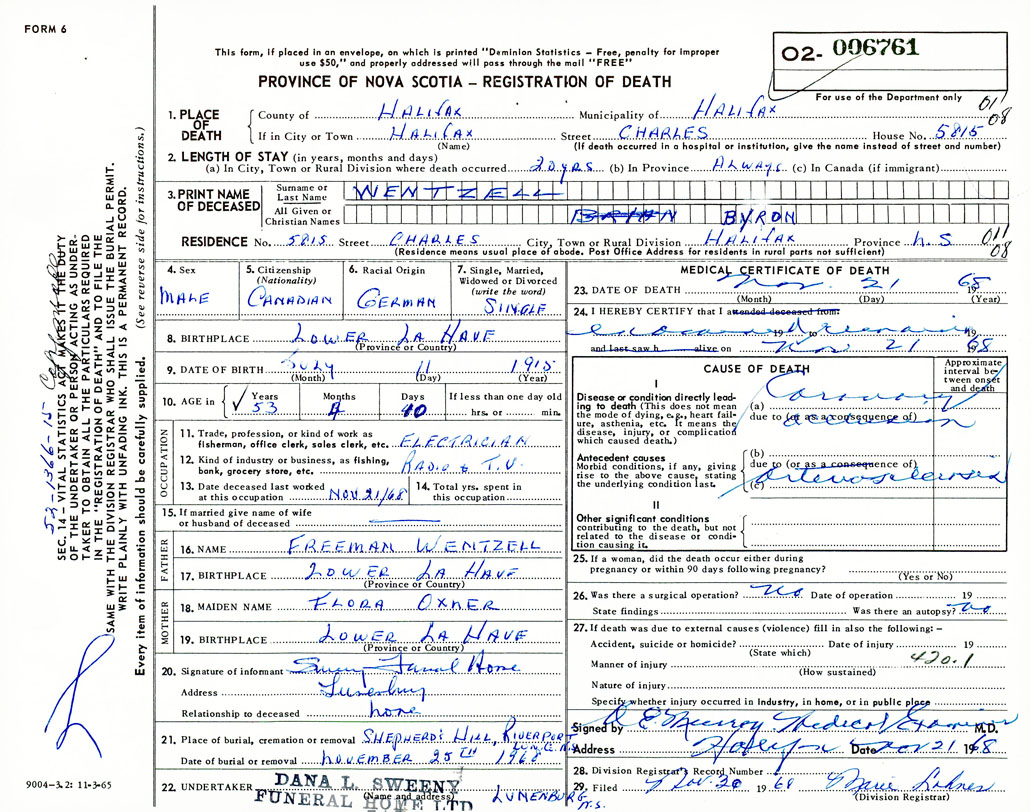 FORM 6
This form, if placed in an envelope, on which is printed "Deminion Statistics – Free, penalty for improper
use $50," and properly addressed will pass through the mail "FREE"
PROVINCE OF NOVA SCOTIA – REGISTRATION OF DEATH
02- 006761
For use of the Department only
011
08
1. PLACE OF DEATH
County of HALIFAX Municipality of HALIFAX
If in City or Town HALIFAX Street CHARLES House No. 5815
(Name) (If death occurred in a hospital or institution, give the name instead of street and number)
2. LENGTH OF STAY (in years, months and days)
(a) In City, Town or Rural Division where death occurred 20 yrs (b) In Province ALWAYS (c) In Canada (if immigrant)
3. PRINT NAME OF DECEASED
Surname or Last Name WENTZELL
All Given or Christian Names BYRON
RESIDENCE No. 5815 Street CHARLES City, Town or Rural Division HALIFAX Province N.S 011
(Residence means usual place of abode. Post Office Address for residents in rural parts not sufficient) 08
4. Sex
MALE
5. Citizenship
(Nationality)
CANADIAN
6. Racial Origin
GERMAN
7. Single, Married,
Widowed or Divorced
(write the word)
SINGLE
8. BIRTHPLACE LOWER LA HAVE
(Province or Country)
9. DATE OF BIRTH JULY 11 1915
(Month) (Day) (Year)
10. AGE in ✓ Years Months Days If less than one day old
53 4 10 hrs. or min.
OCCUPATION
11. Trade, profession, or kind of work as
fisherman, office clerk, sales clerk, etc. ELECTRICIAN
12. Kind of industry or business, as fishing,
bank, grocery store, etc. RADIO & T.V.
13. Date deceased last worked
at this occupation NOV. 21/68
14. Total yrs. spent in
this occupation
15. If married give name of wife
or husband of deceased
FATHER
16. NAME FREEMAN WENTZELL
17. BIRTHPLACE LOWER LA HAVE
(Province or Country)
MOTHER
18. MAIDEN NAME FLORA OXNER
19. BIRTHPLACE LOWER LA HAVE
(Province or Country)
20. Signature of informant
Address Lunenburg
Relationship to deceased none
21. Place of burial, cremation or removal SHEPHERDS HILL, RIVERPORT
Date of burial or removal NOVEMBER 25TH 1968
22. UNDERTAKER DANA L. SWEENY
FUNERAL HOME LTD
(Name and address)
LUNENBURG
N.S.
MEDICAL CERTIFICATE OF DEATH
23. DATE OF DEATH Nov. 21 1968
(Month) (Day) (Year)
24. I HEREBY CERTIFY that I attended deceased from:
examined 19 to remains 19
and last saw h alive on Nov 21 1968
CAUSE OF DEATH
Approximate
interval be-
tween onset
and death
I
Disease or condition directly lead-
ing to death (This does not
mean the mode of dying, e.g., heart fail-
ure, asthenia, etc. It means the
disease, injury, or complication
which caused death.)
(a) Coronary
due to (or as a consequence of)
occlusion
Antecedent causes
Morbid conditions, if any, giving
rise to the above cause, stating
the underlying condition last.
(b)
due to (or as a consequence of)
(c) arteriosclerosis
II
Other significant conditions
contributing to the death, but not
related to the disease or condi-
tion causing it.
25. If a woman, did the death occur either during
pregnancy or within 90 days following pregnancy?
(Yes or No)
26. Was there a surgical operation? No Date of operation 19
State findings Was there an autopsy? No
27. If death was due to external causes (violence) fill in also the following: –
Accident, suicide or homicide? Date of injury 19
(State which)
420.1
Manner of injury
(How sustained)
Nature of injury
Specify whether injury occurred in industry, in home, or in public place
Signed by E. Murray Medical Examiner M.D.
Address Halifax Date Nov 21 1968
28. Division Registrar's Record Number
29. Filed Nov. 26 1968 Marie
(Division Registrar)
52-1366-15
SEC. 14 – VITAL STATISTICS ACT MAKES IT THE DUTY
OF THE UNDERTAKER OR PERSON ACTING AS UNDER-
TAKER TO OBTAIN ALL THE PARTICULARS REQUIRED
IN THE "REGISTRATION OF DEATH" AND TO FILE THE
SAME WITH THE DIVISION REGISTRAR WHO SHALL ISSUE THE BURIAL PERMIT.
WRITE PLAINLY WITH UNFADING INK. THIS IS A PERMANENT RECORD.
Every item of information should be carefully supplied. (See reverse side for instructions.)
9004-3.2: 11-3-65